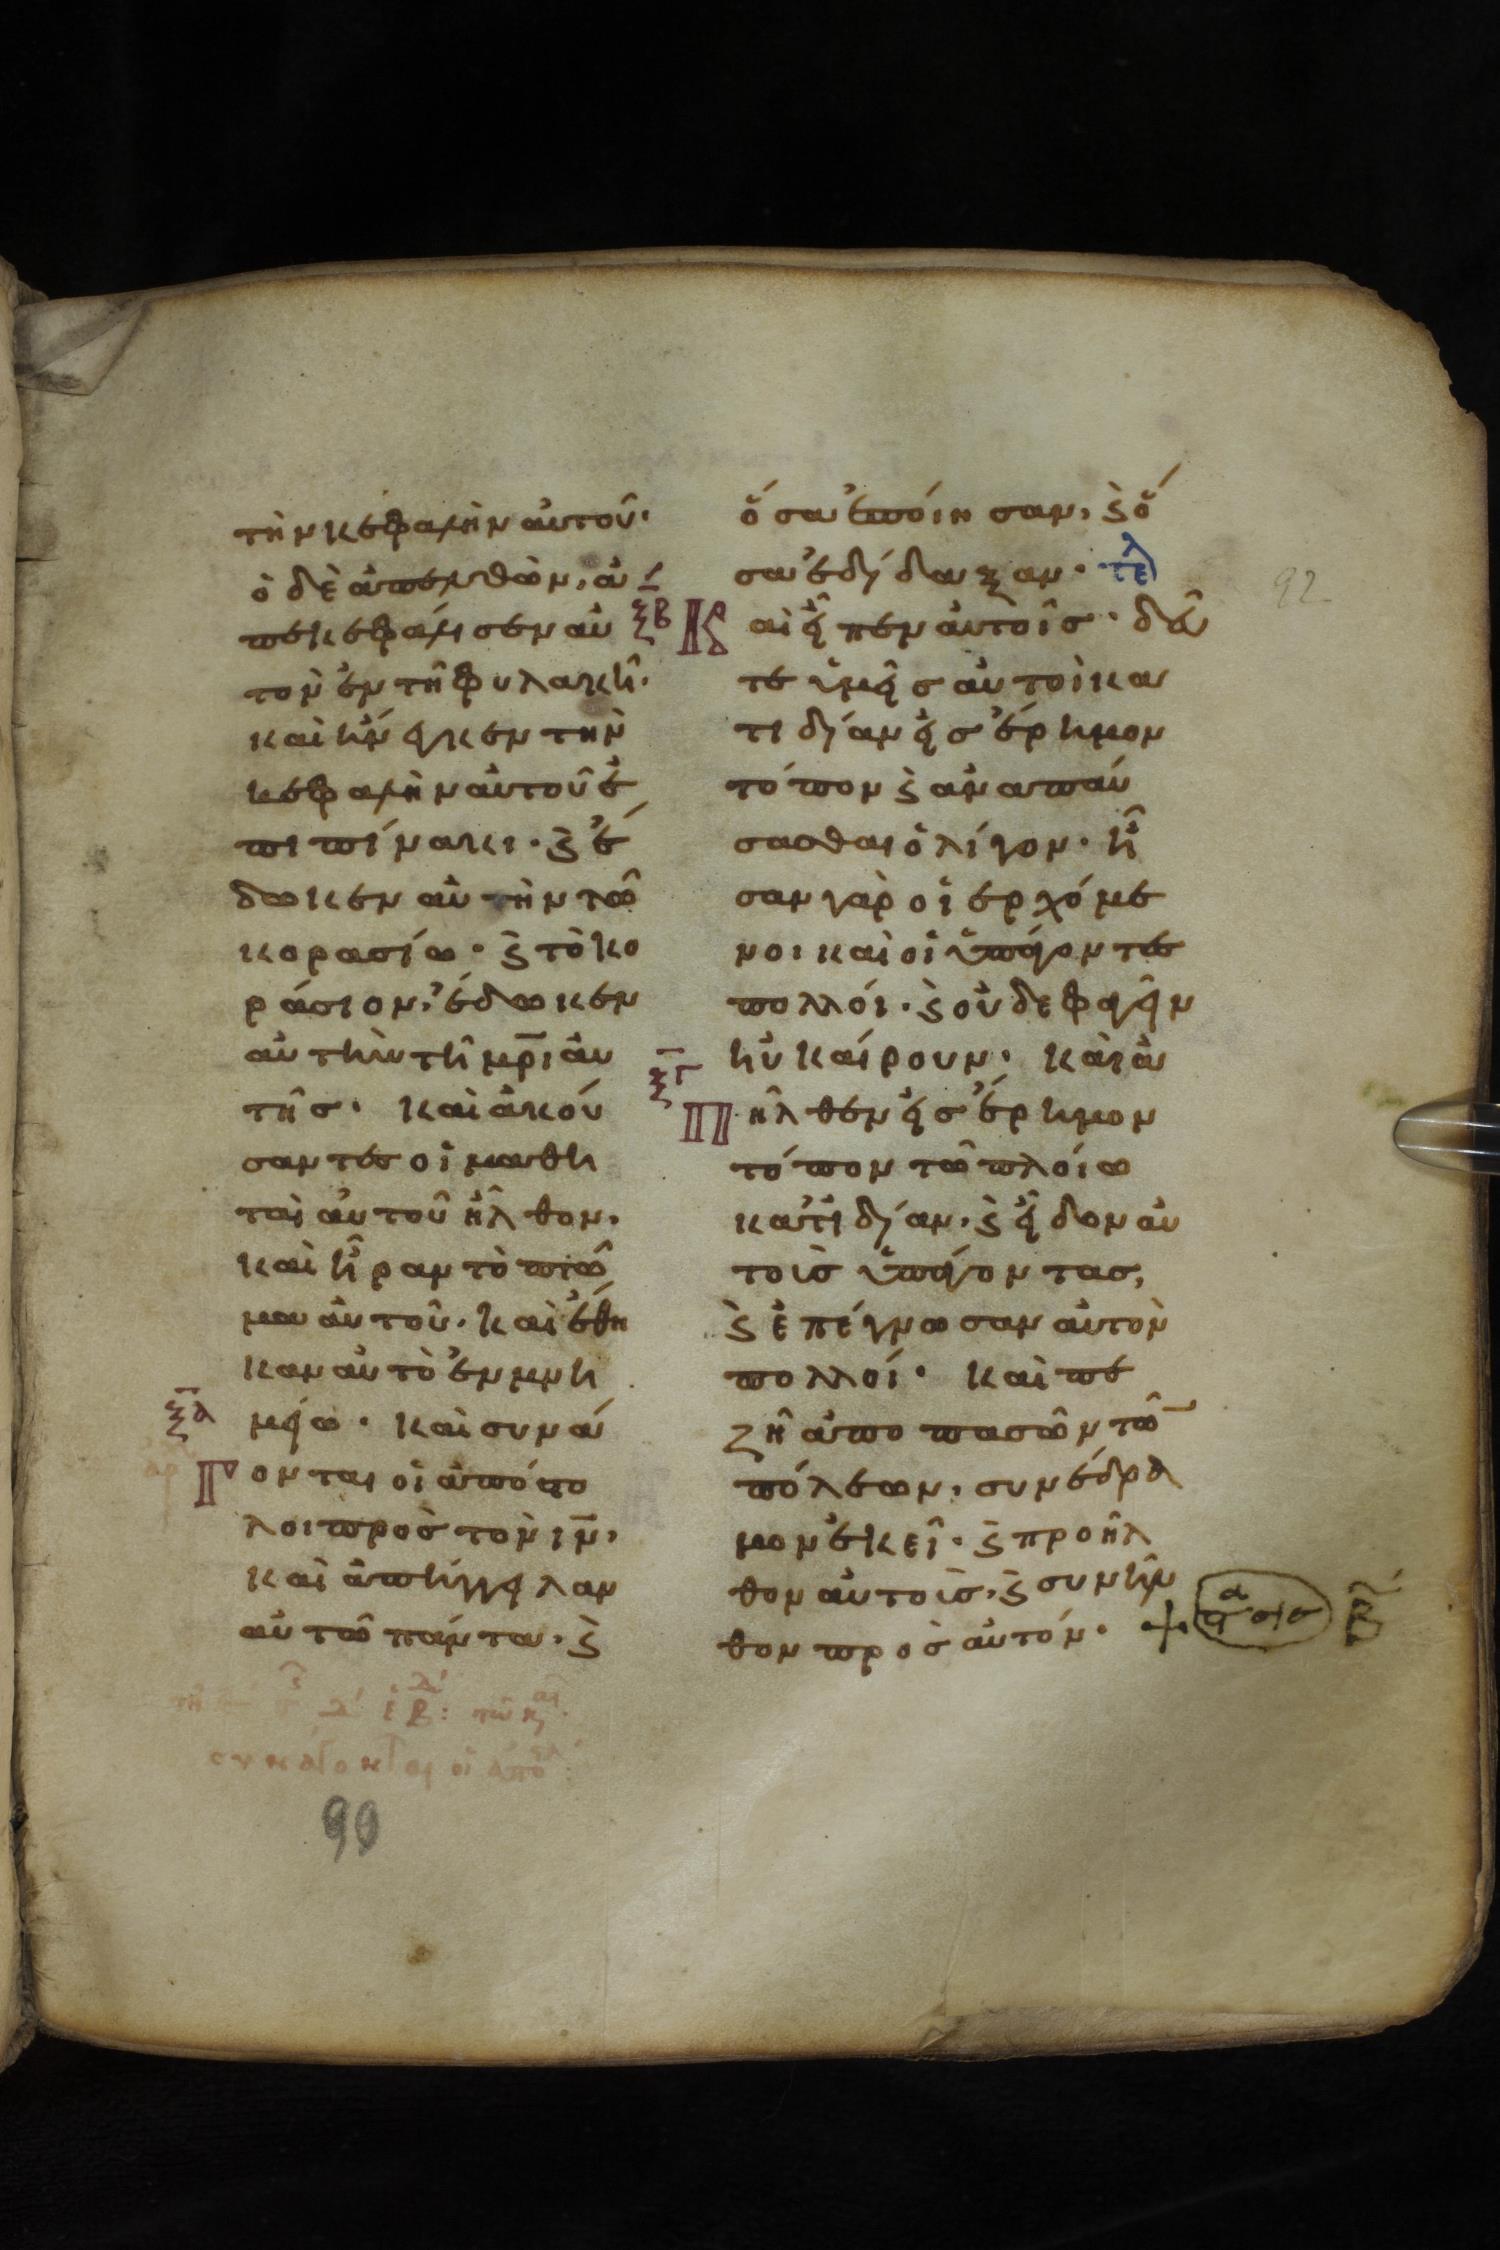 τὴν κεφαλὴν αὐτοῦ·
ὁ δὲ ἀπελθὼν, ἀ
πεκεφάλισεν αὐ
τὸν ἐν τῆ φυλακῆ·
καὶ ἤνεγκεν τὴν
κεφαλὴν αὐτοῦ ἐ
πὶ πίνακι· ϛ ἔ
δωκεν αὐτὴν τῶ
κορασίω· ϛ τὸ κο
ράσιον, ἔδωκεν
αὐτὴν τῆ μρ̅ι αὐ
τῆς· καὶ ἀκού
σαντες οἱ μαθη
ταὶ αὐτοῦ ἦλθον,
καὶ ἦραν τὸ πτῶ
μα αὐτοῦ· καὶ ἔθη
καν αὐτὸ ἐν μνη
ξα μείω· καὶ συνά
Γονται οἱ ἀπόστο
λοι πρὸς τὸν ιν̅,
καὶ ἀπήγγειλαν
αὐτῶ πάντα· ϛ
συνάγονται οἱ ἀπό
90
ὅσα ἐποίησαν, ϛ ὅ
σα ἐδίδαξαν· τελ
ξβ Καὶ εἶπεν αὐτοῖς· δεῦ
τε ὑμεῖς αὐτοὶ κα
τιδίαν εἰς ἔρημον
τόπον ϛ ἀναπαύ
σασθαι ὀλίγον· ἦ
σαν γὰρ οἱ ἐρχόμε
νοι καὶ οἱ ὑπάγοντες
πολλοί· ϛ οὐδε φαγεῖν
ηὐκαίρουν· καὶ ἀ
ξγ Πῆλθεν εἰς ἔρημον
τόπον τῶ πλοίω
κατιδίαν, ϛ εἶδον αὐ
τοὺς ὑπάγοντας,
ϛ ἐπέγνωσαν αὐτὸν
πολλοί· καὶ πε
ζῆ ἀπο πασῶν τῶ
πόλεων, συνέδρα
μον ἐκεῖ· ϛ προῆλ
θον αὐτοὺς, ϛ συνῆλ
θον πρὸς αὐτόν·
92